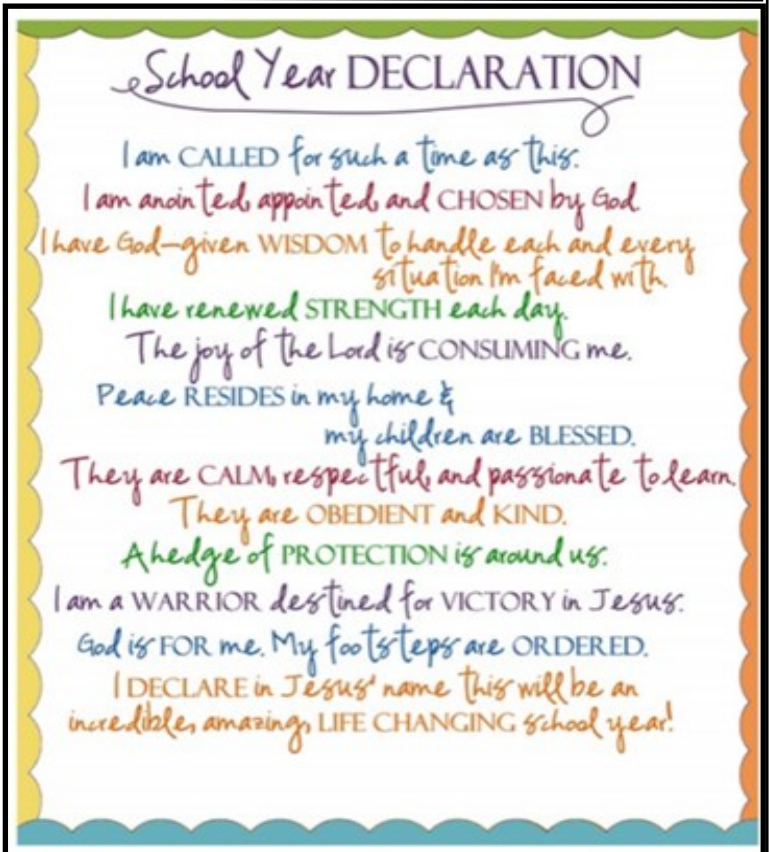 School Year DECLARATION
I am CALLED for such a time as this.
I am anointed, appointed, and CHOSEN by God
I have God-given WISDOM to handle each and every
situation I'm faced with.
I have renewed STRENGTH each day.
The joy of the Lord is CONSUMING me.
Peace RESIDES in my home &
my children are BLESSED.
They are CALM, respectful, and passionate to learn.
They are OBEDIENT and KIND.
A hedge of PROTECTION is around us.
I am a WARRIOR destined for VICTORY in Jesus.
God is FOR me. My footsteps are ORDERED.
I DECLARE in Jesus' name this will be an
incredible, amazing, LIFE CHANGING school year!